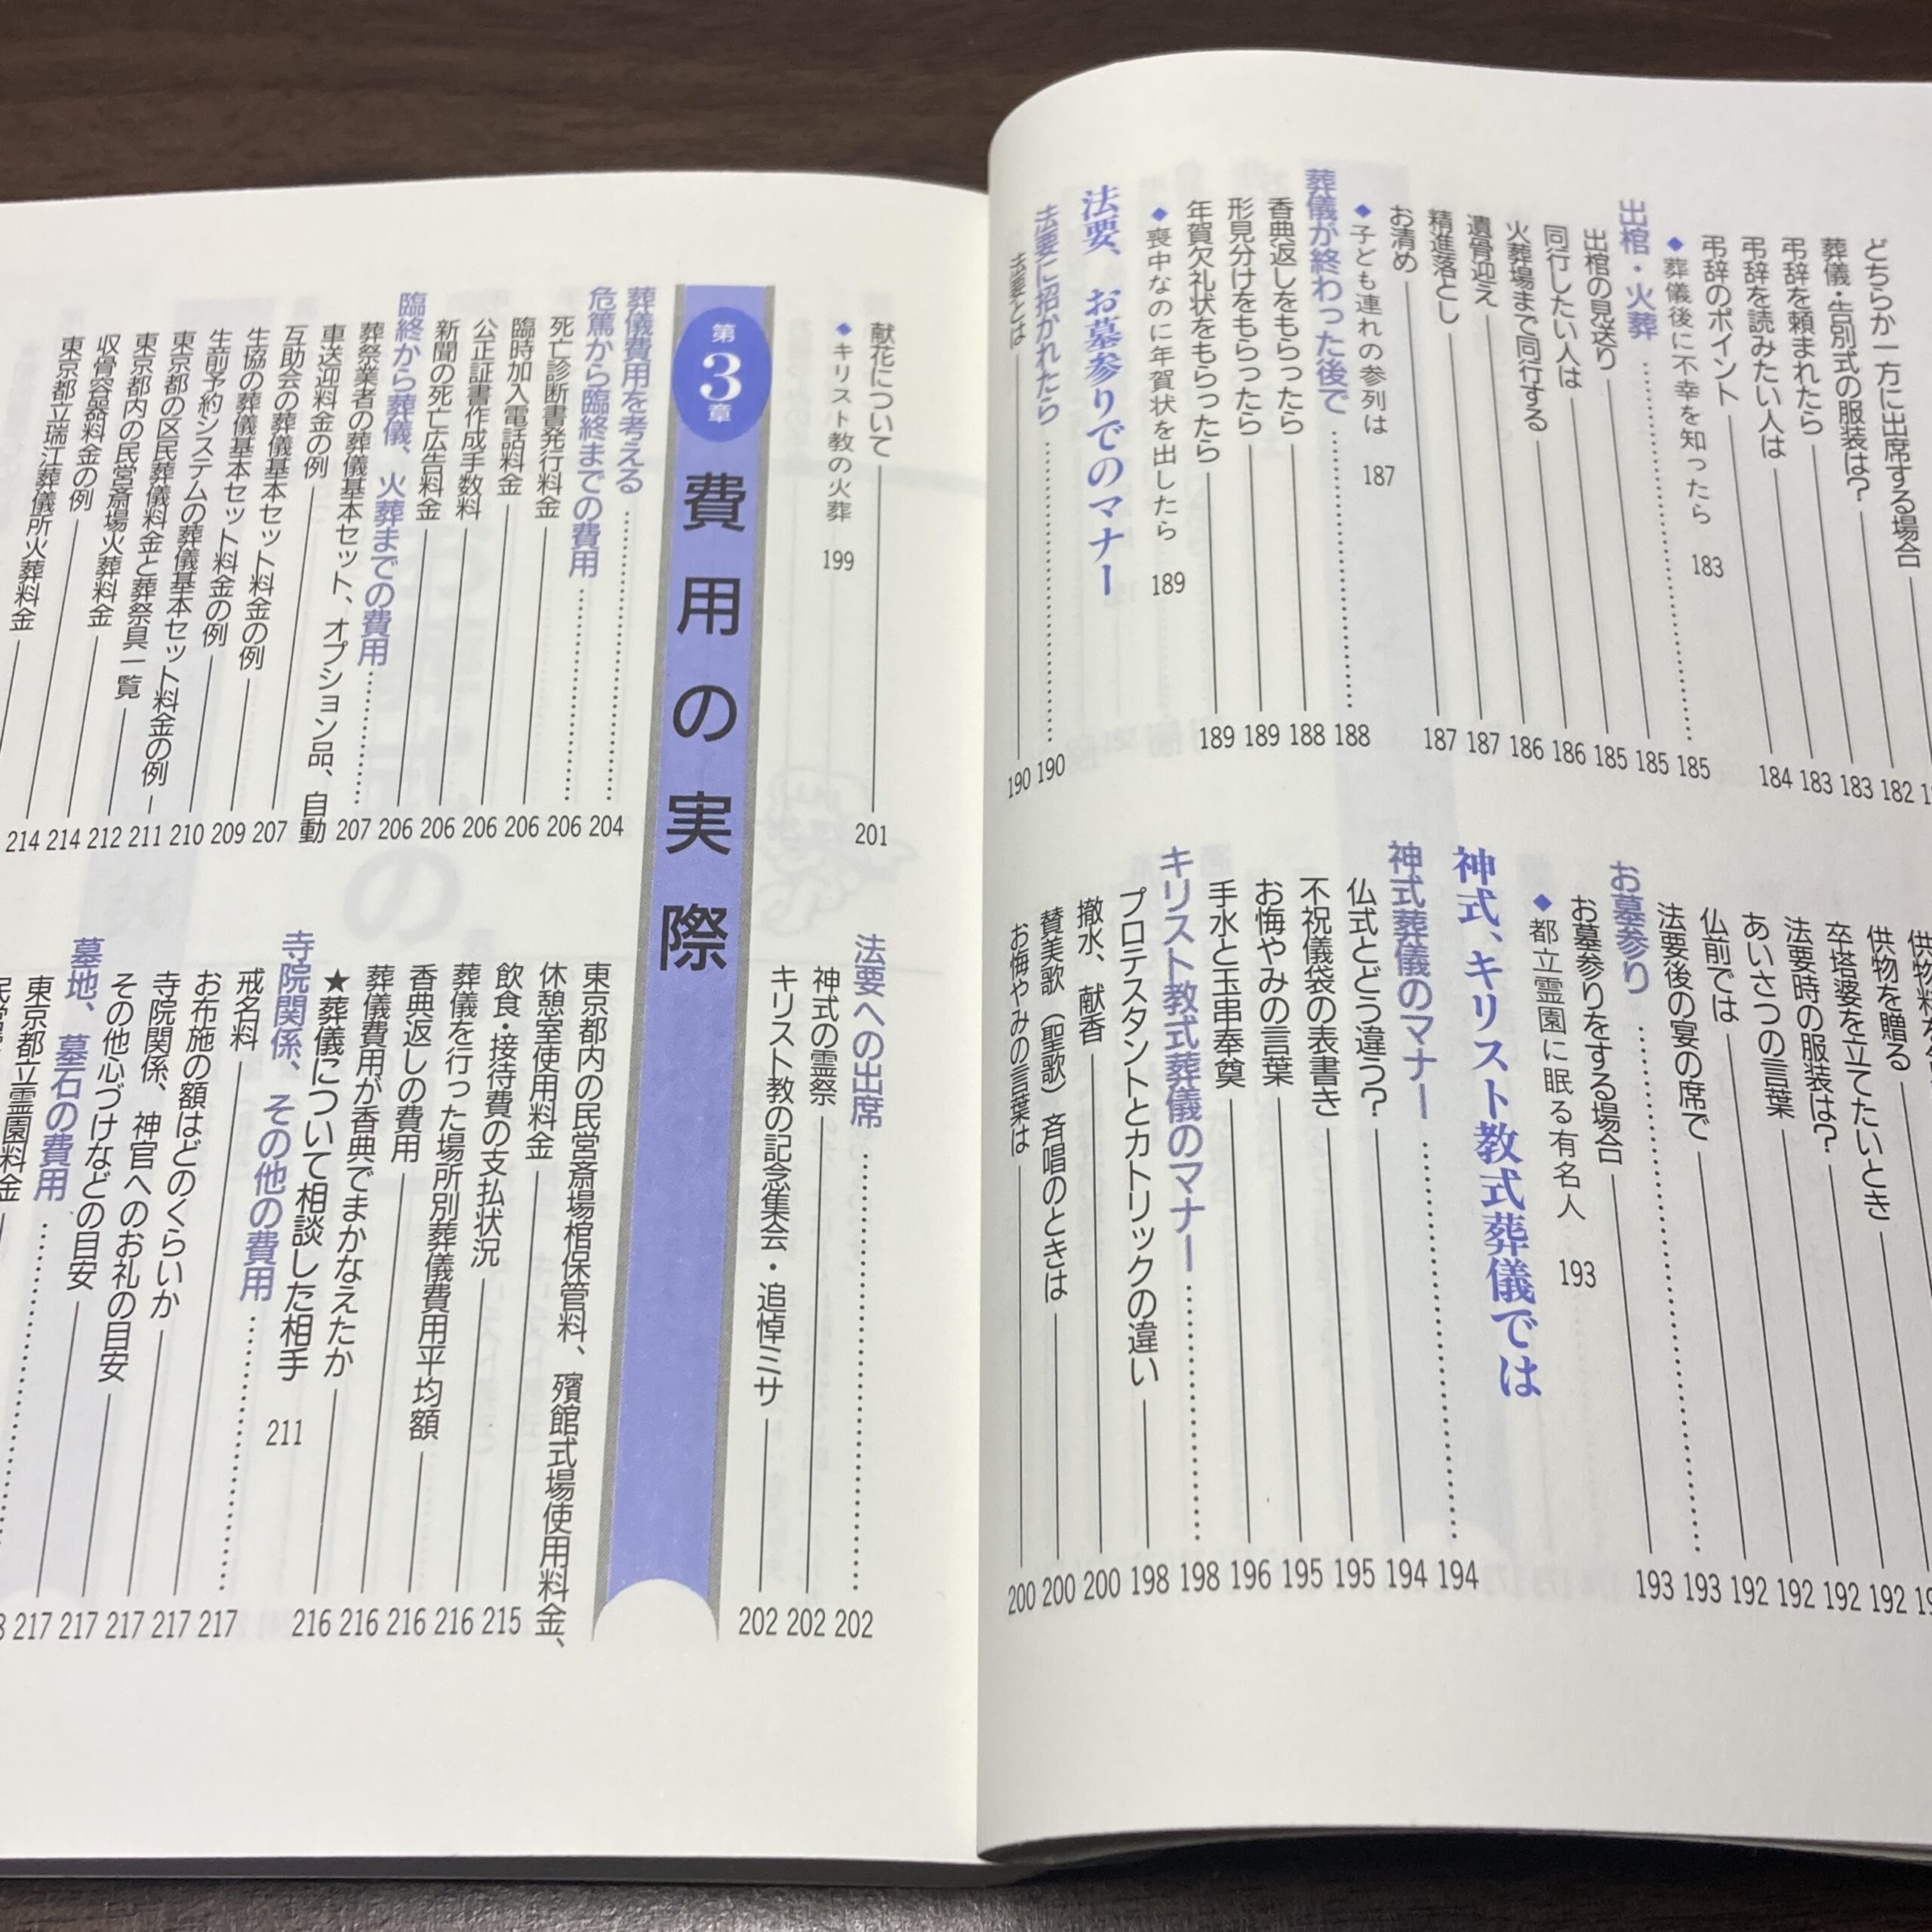 どちらか一方に出席する場合 182
葬儀・告別式の服装は? 183
弔辞を頼まれたら 183
弔辞を読みたい人は 184
弔辞のポイント
◆葬儀後に不幸を知ったら 183
出棺・火葬 185
出棺の見送り 185
同行したい人は 185
火葬場まで同行する 186
遺骨迎え 186
精進落とし 187
お清め 187
◆子ども連れの参列は 187
葬儀が終わった後で 188
香典返しをもらったら 188
形見分けをもらったら 189
年賀欠礼状をもらったら 189
◆喪中なのに年賀状を出したら 189
法要、お墓参りでのマナー
法要に招かれたら 190
法要とは 190
供物を贈る 192
卒塔婆を立てたいとき 192
法要時の服装は? 192
あいさつの言葉 192
仏前では
法要後の宴の席で
お墓参り 193
お墓参りをする場合 193
◆都立霊園に眠る有名人 193
神式、キリスト教式葬儀では
神式葬儀のマナー 194
仏式とどう違う? 194
不祝儀袋の表書き 195
お悔やみの言葉 195
手水と玉串奉奠 196
キリスト教式葬儀のマナー 198
プロテスタントとカトリックの違い 198
撤水、献香 200
賛美歌(聖歌)斉唱のときは 200
お悔やみの言葉は 200
献花について 201
◆キリスト教の火葬 199
法要への出席 202
神式の霊祭 202
キリスト教の記念集会・追悼ミサ 202
第3章 費用の実際
葬儀費用を考える 204
危篤から臨終までの費用 206
死亡診断書発行料金 206
臨時加入電話料金 206
公正証書作成手数料 206
新聞の死亡広告料金 206
臨終から葬儀、火葬までの費用 207
葬祭業者の葬儀基本セット、オプション品、自動
車送迎料金の例 207
互助会の葬儀基本セット料金の例 209
生協の葬儀基本セット料金の例 210
生前予約システムの葬儀基本セット料金の例 211
東京都の区民葬儀料金と葬祭具一覧 212
東京都内の民営斎場火葬料金 214
収骨容器料金の例 214
東京都立瑞江葬儀所火葬料金
東京都内の民営斎場棺保管料、殯館式場使用料金、
休憩室使用料金 215
飲食・接待費の支払状況 216
葬儀を行った場所別葬儀費用平均額 216
香典返しの費用 216
葬儀費用が香典でまかなえたか 216
★葬儀について相談した相手 211
寺院関係、その他の費用 217
戒名料 217
お布施の額はどのくらいか 217
寺院関係、神官へのお礼の目安 217
その他心づけなどの目安 217
墓地、墓石の費用
東京都立霊園料金